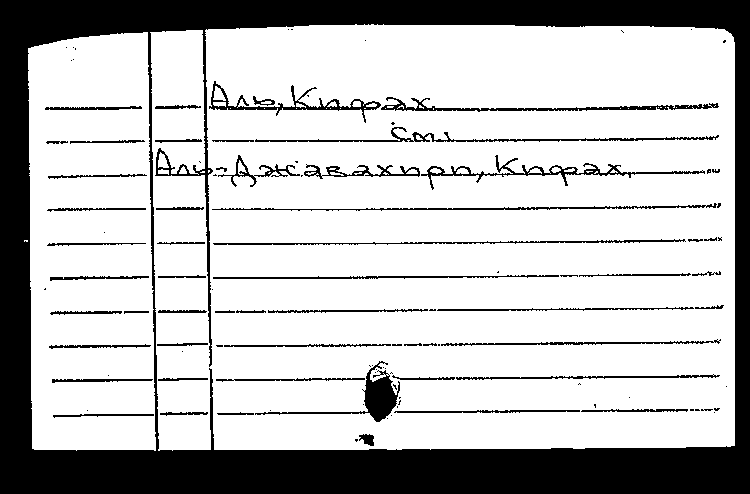 Аль, Кифах
см.
Аль-Джавахири, Кифах.